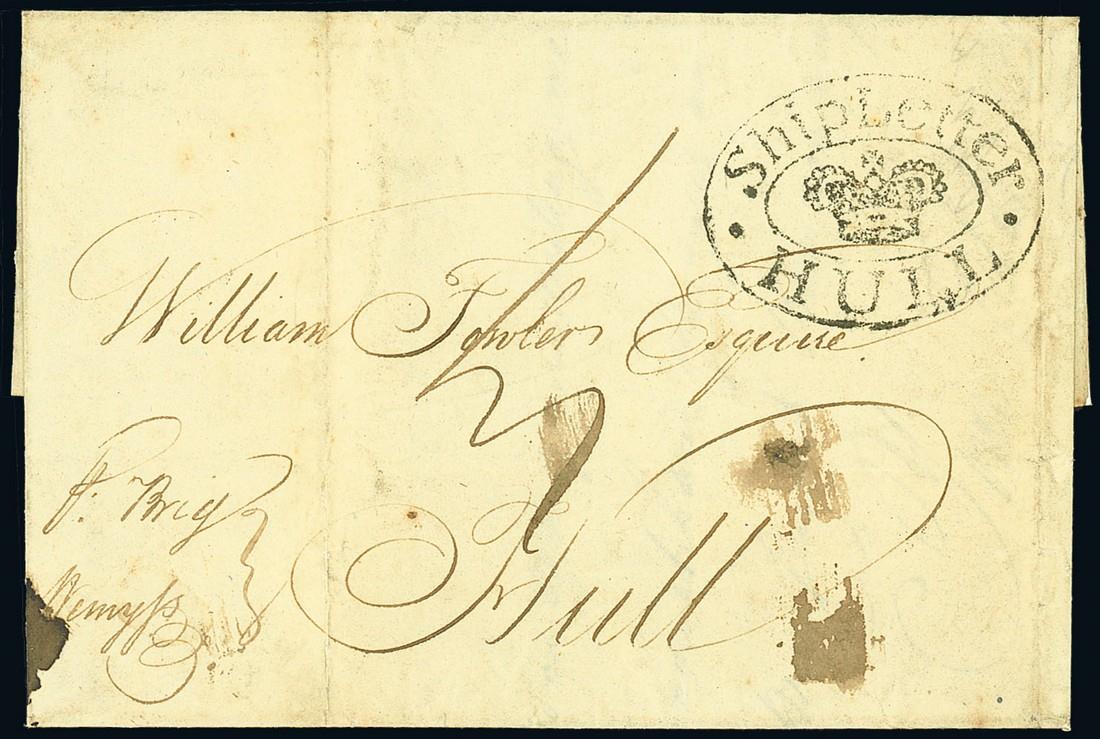 Ship Letter
HULL
William Fowler Esquire
Brig
Wemyss
Hull